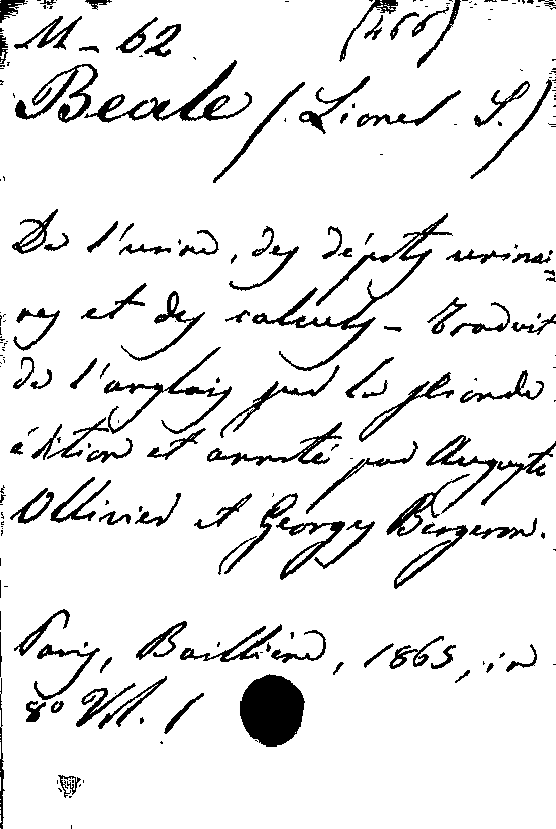 M - 62 (466)
Beale (Lionel S.)
De l'urine, des dépots urinai=
res et des calculs - Traduit
de l'anglais sur la seconde
édition et annoté par Auguste
Ollivier et Georges Bergeron.
Paris, Baillière, 1865, in
8º Vol. 1